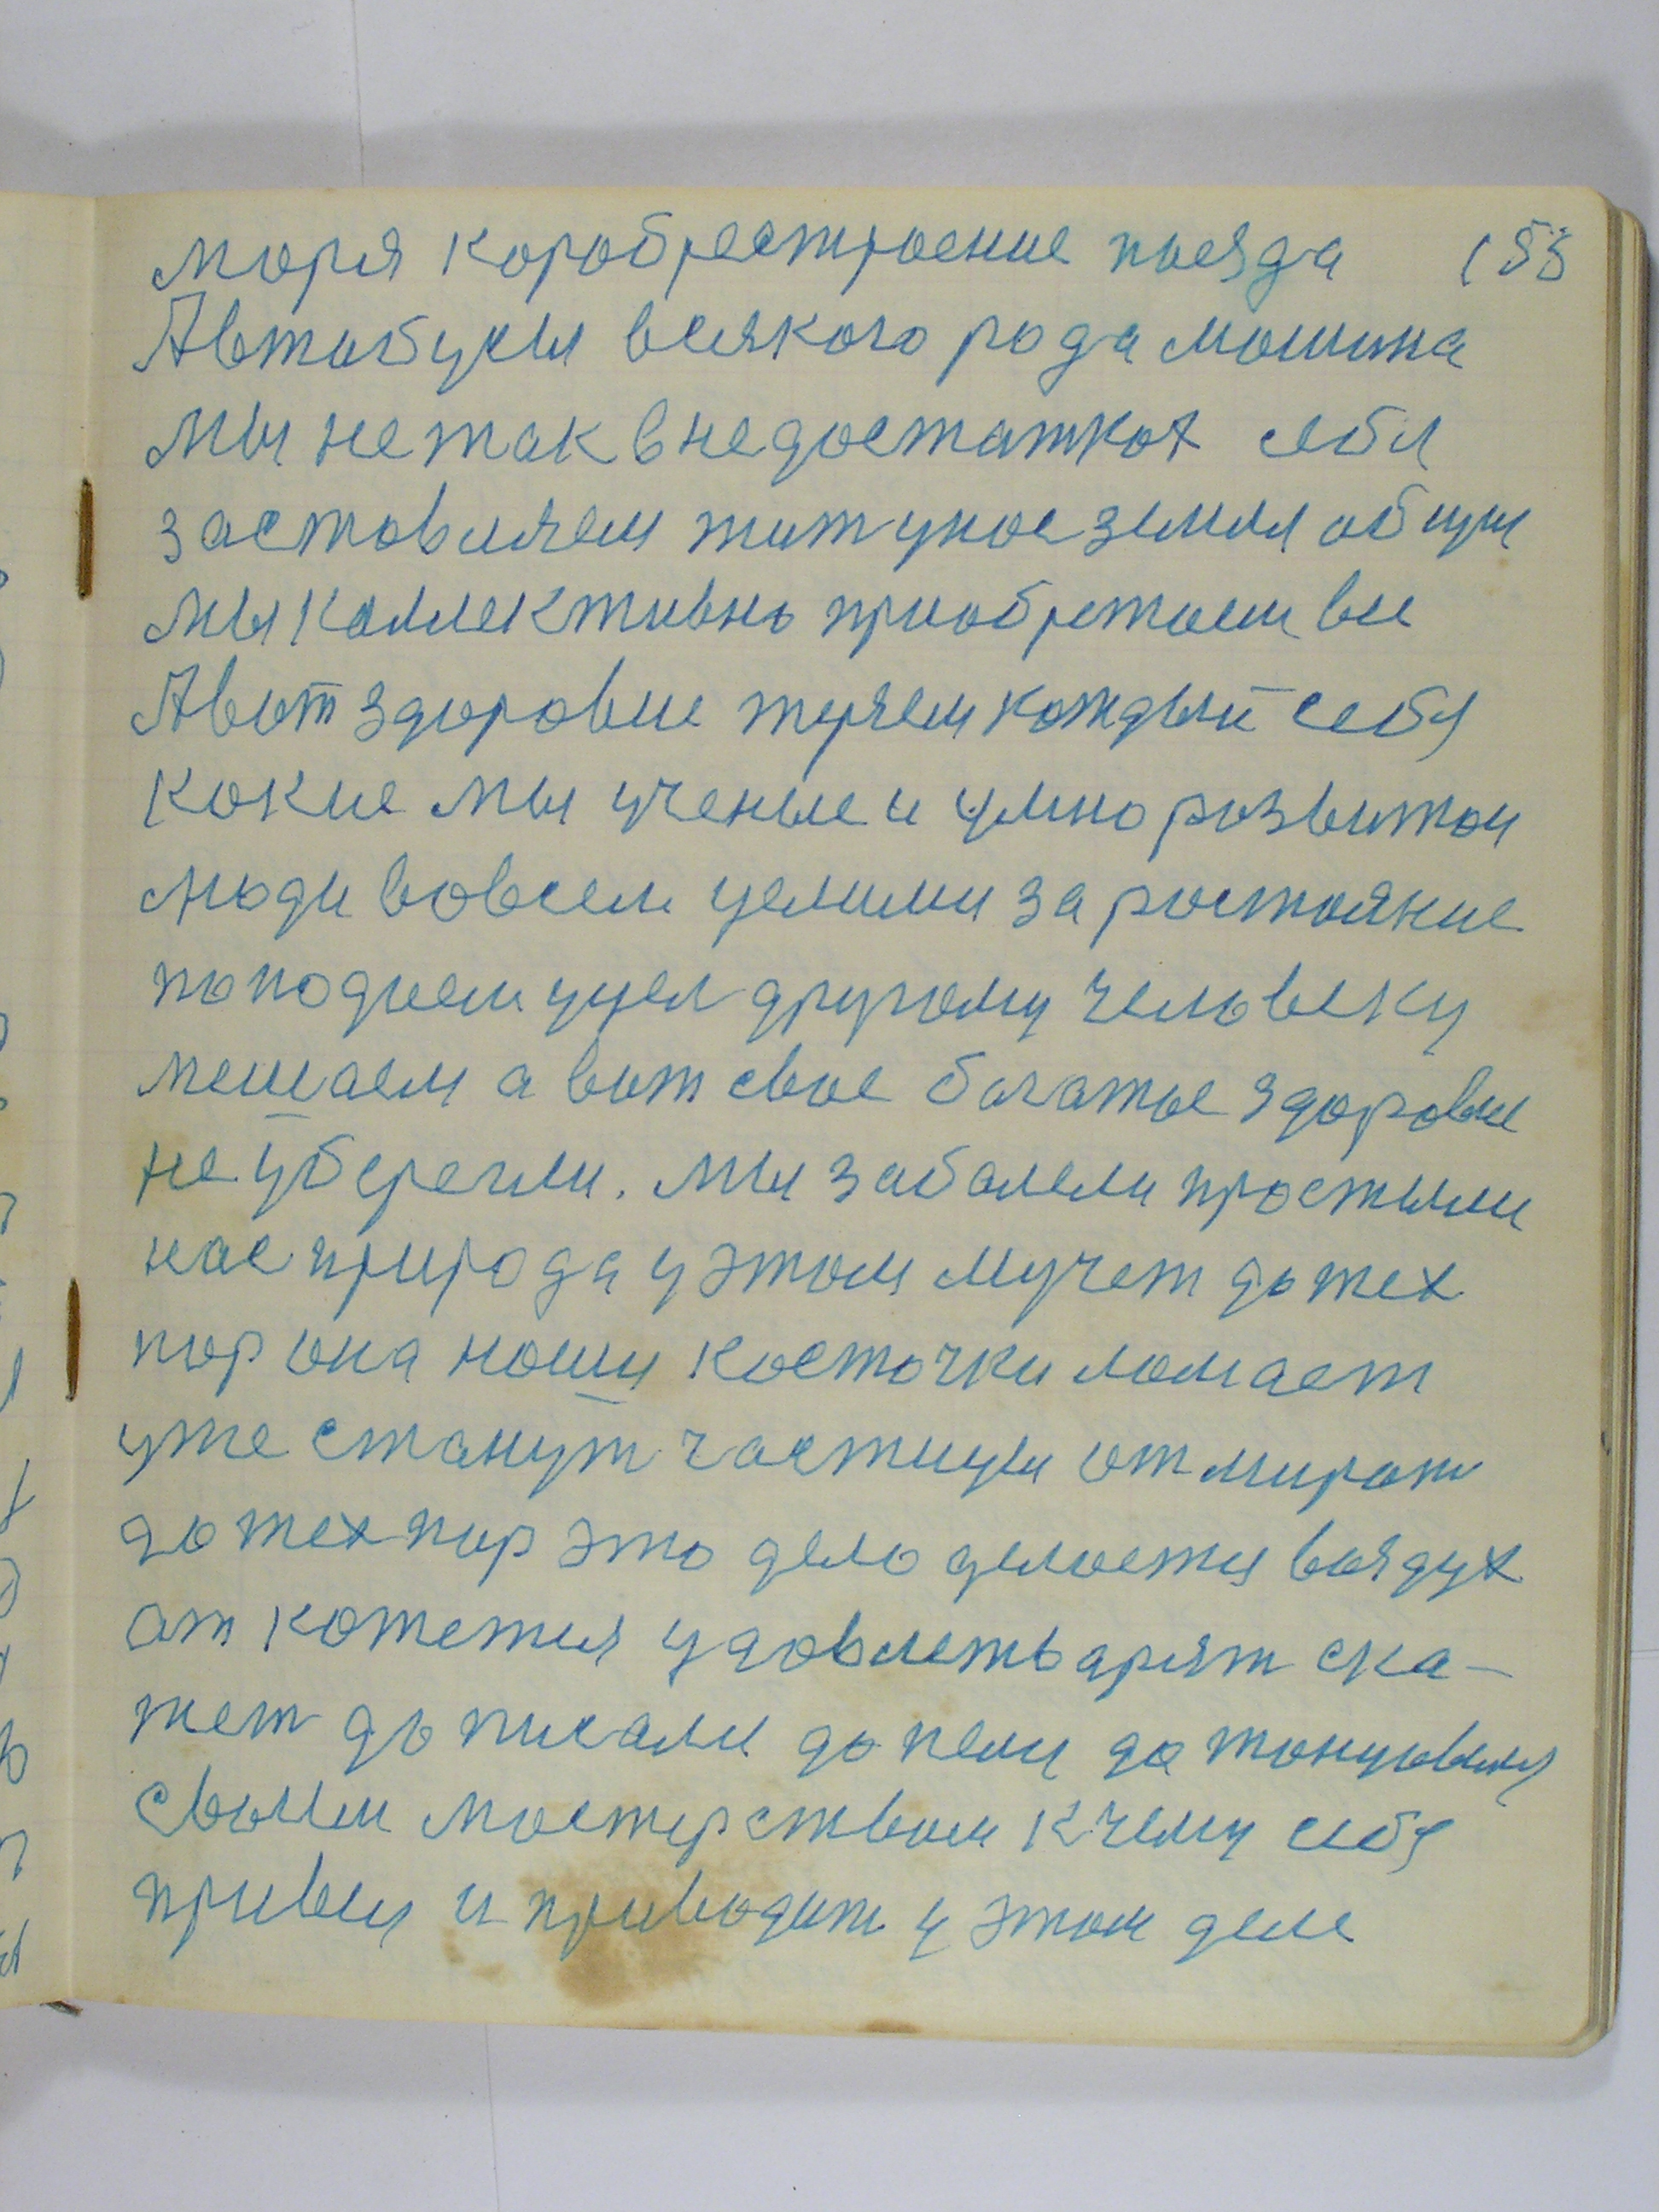 моря коробрестроение поезда 155
Автобусы всякого рода мошина
мы не так в недостатках себя
заставляем жит у ное земля общи
мы коллективнь приобретаем все
А вот здоровие теряем каждый себя
кокие мы ученые и умно розвитои
люди во всем целими за ростояние
поподаем ущел другому человеку
мешаем а вот свое багатое здоровие
не уберегли. мы заболели простыли
нас природа у этом мучет до тех
пор она ноши косточки ломает
уже станут частицы отмират
до тех пор это дело делается воздух
от кажется удовлетьварят ска-
жет до писали до пели до тонцовали
своим мостерством к чему себя
привел и приводит у этом деле